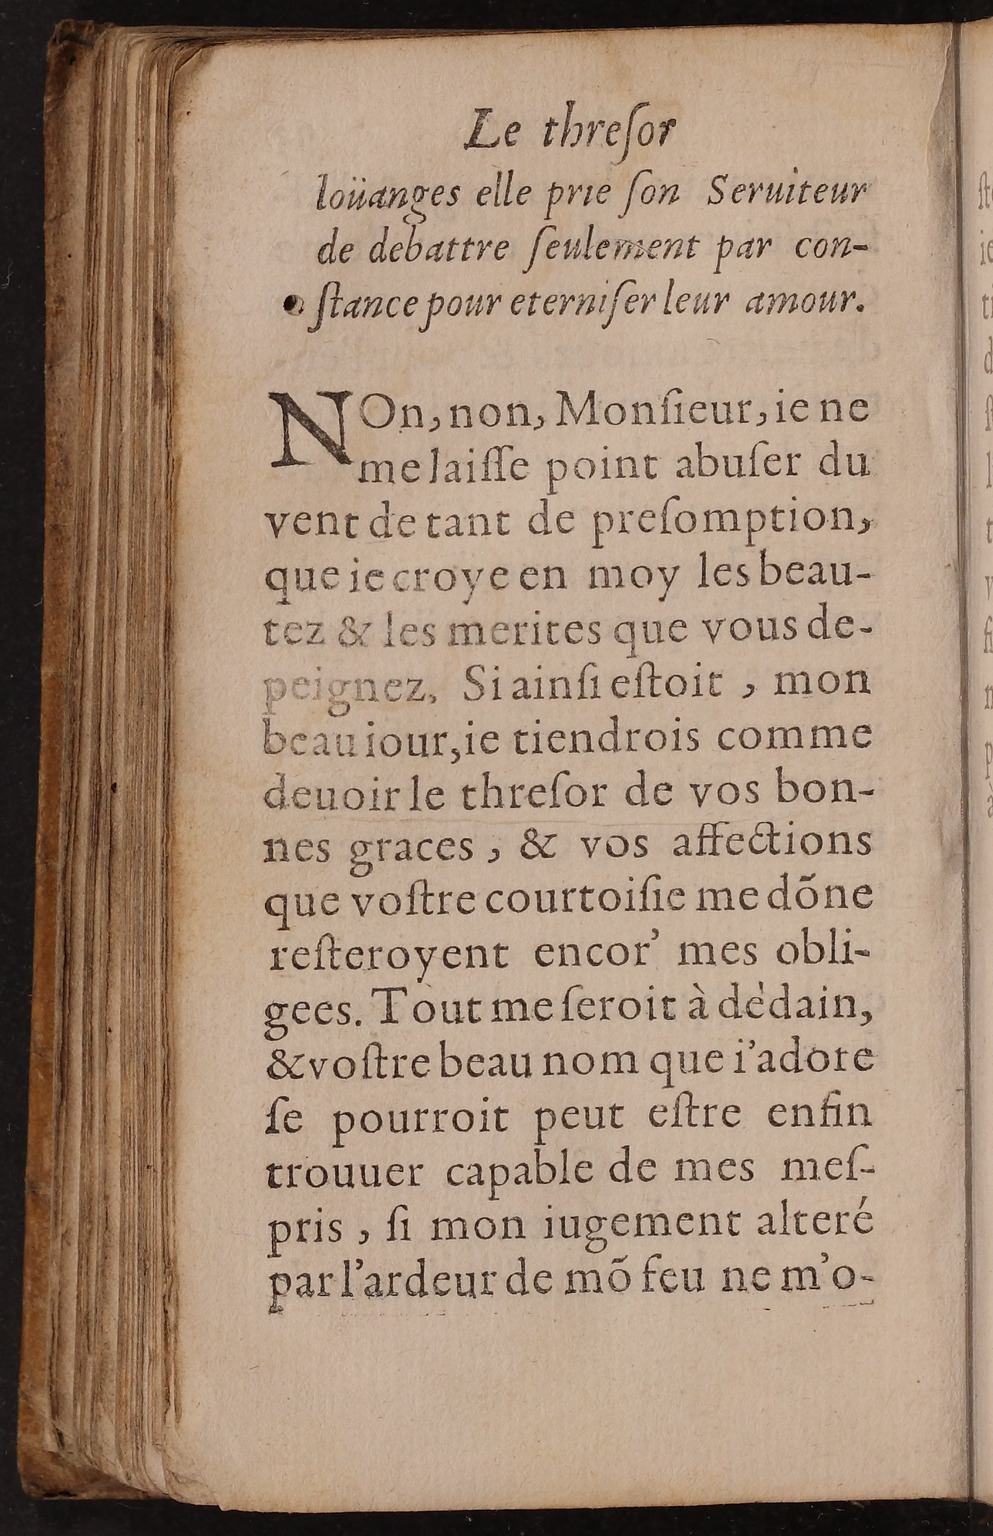 Le threſor
loüanges elle prie ſon Seruiteur
de debattre ſeulement par con-
ſtance pour eterniſer leur amour.
NOn, non, Monſieur, ie ne
me laiſſe point abuſer du
vent de tant de preſomption,
que ie croye en moy les beau-
tez & les merites que vous de-
peignez, Si ainſi eſtoit , mon
beau iour, ie tiendrois comme
deuoir le threſor de vos bon-
nes graces , & vos affections
que voſtre courtoiſie me dõne
reſteroyent encor’ mes obli-
gees. Tout me ſeroit à dédain,
& voſtre beau nom que i’adore
ſe pourroit peut eſtre enfin
trouuer capable de mes meſ-
pris , ſi mon iugement alteré
par l’ardeur de mõ feu ne m’o-